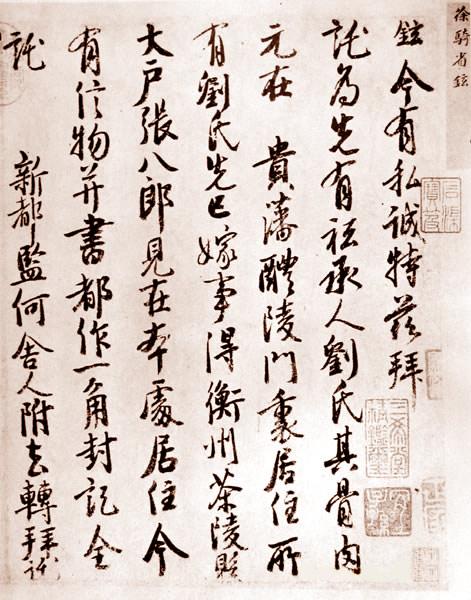 徐騎省鉉
鉉今有私誠特茲拜
託為先有祗承人劉氏其骨肉
元在 貴藩醴陵門裏居住所
有劉氏先已嫁事得衡州茶陵縣
大戶張八郎見在本處居住今
有信物并書都作一角封記全
託 新都監何舍人附去轉拜託
三希堂精鑑璽
宜子孫